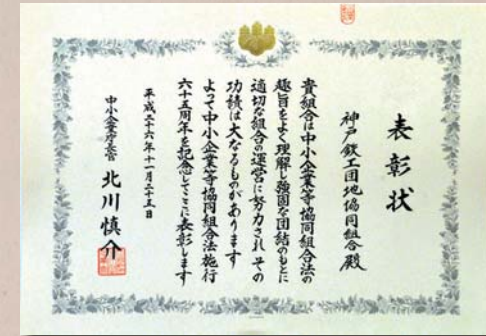 表彰状
神戸鉄工団地協同組合殿
貴組合は中小企業等協同組合法の
趣旨をよく理解し強固な団結のもとに
適切な組合の運営に努力されその
功績は大なるものがあります
よって中小企業等協同組合法施行
六十五周年を記念してここに表彰します
平成二十六年十一月二十五日
中小企業庁長官 北川慎介